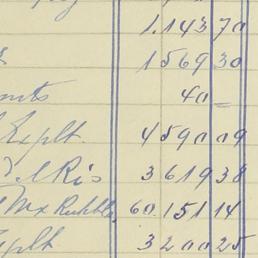 1.143 70
1569 30
40 =
Explt. 4590 09
3619 38
Mx Rubble, 60.151 14
Explt 3200 25